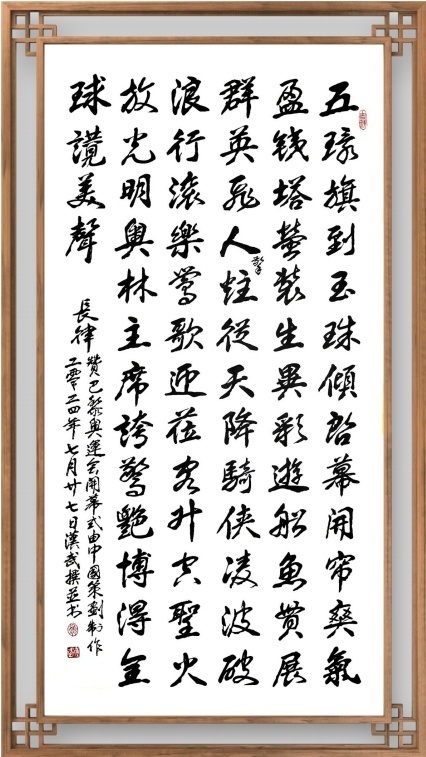 五環旗到玉珠傾啓幕開帘爽氣
盈铁塔螢裝生異彩遊船魚貫展
群英飛人擎炷從天降騎俠凌波破
浪行滾樂鶯歌迎莅客升空聖火
放光明奥林主席誇驚艷博得全
球讚美聲
長律
贊巴黎奥運会開幕式由中國策劃制作
二零二四年七月廿七日漢武撰並书